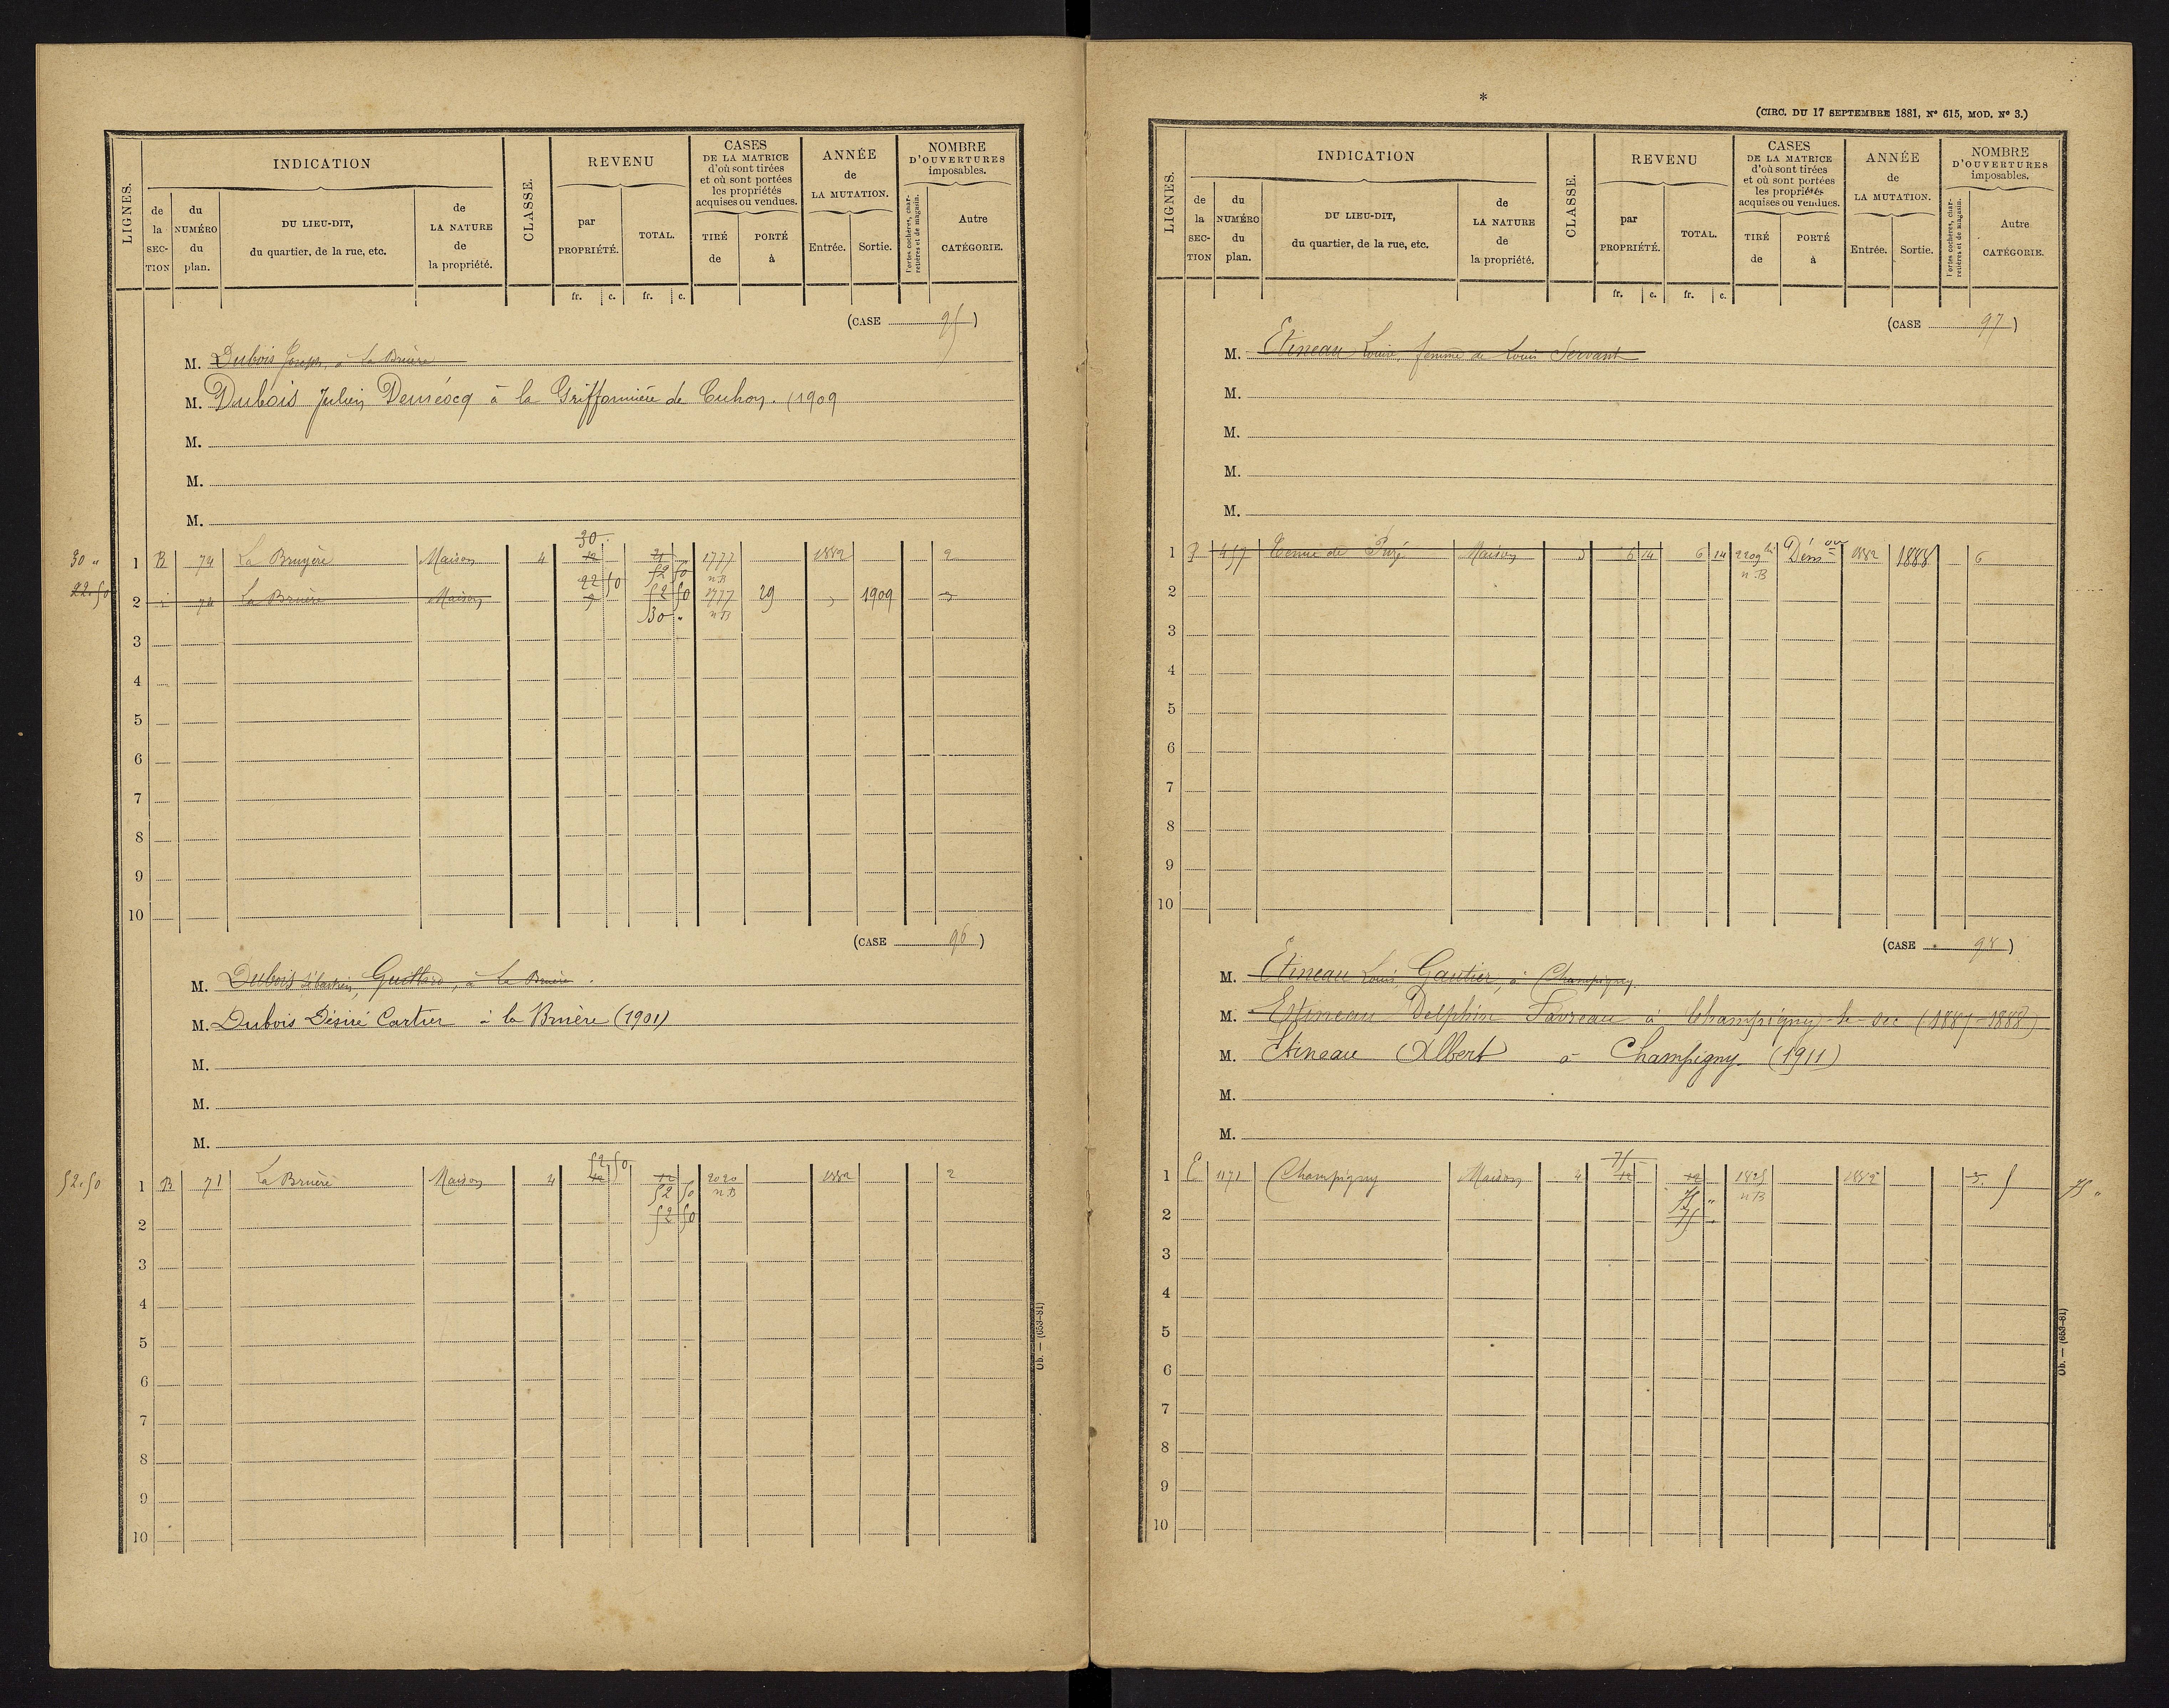 LIGNES.
INDICATION
de la SECTION
du NUMÉRO du plan.
DU LIEU-DIT, du quartier, de la rue, etc.
de LA NATURE de la propriété.
CLASSE.
REVENU
par PROPRIÉTÉ.
TOTAL.
fr. c. fr. c.
CASES DE LA MATRICE d'où sont tirées et où sont portées les propriétés acquises ou vendues.
TIRÉ de
PORTÉ à
ANNÉE de LA MUTATION.
Entrée. Sortie.
NOMBRE D'OUVERTURES imposables.
Portes cochères, charretières et de magasin.
Autre CATÉGORIE.
(CASE 95)
M. Dubois Joseph, à La Bruère
M. Dubois Julien Demeocq à la Griffonnière de Cuhon. (1909
M.
M.
M.
30 "
30
1 B 74 La Bruyère Maison 4 12 21 1777 1882 2
52 50 n.B
22.50
22 50
2 74 La Bruère Maison 9 52 50 1777 29 1909 3
30 " n B
3
4
5
6
7
8
9
10
(CASE 96)
M. Dubois Sébastien, Guittard, à La Bruère.
M. Dubois Désiré Cartier à la Bruère (1901)
M.
M.
M.
52.50
52 50
1 B 71 La Bruère Maison 4 12 12 2020 1882 2
52 50 n.B
2 52 50
3
4
5
6
7
8
9
10
Ob. — (653-81)
*
(CIRC. DU 17 SEPTEMBRE 1881, N° 615, MOD. N° 3.)
LIGNES.
INDICATION
de la SECTION
du NUMÉRO du plan.
DU LIEU-DIT, du quartier, de la rue, etc.
de LA NATURE de la propriété.
CLASSE.
REVENU
par PROPRIÉTÉ.
TOTAL.
fr. c. fr. c.
CASES DE LA MATRICE d'où sont tirées et où sont portées les propriétés acquises ou vendues.
TIRÉ de
PORTÉ à
ANNÉE de LA MUTATION.
Entrée. Sortie.
NOMBRE D'OUVERTURES imposables.
Portes cochères, charretières et de magasin.
Autre CATÉGORIE.
(CASE 97)
M. Etineau Louise, femme de Louis Servant
M.
M.
M.
M.
1 457 Maison 5 6 14 6 14 2209 bis Dém on 1882 1888 6
n.B
2
3
4
5
6
7
8
9
10
(CASE 98)
M. Etineau Louis, Gautier, à Champigny.
M. Etineau Delphin Favreau à Champigny-le-Sec (1887-1888)
M. Etineau Albert à Champigny. (1911)
M.
M.
75
1 E 1171 Champigny Maison 4 12 12 1825 1882 3 5
75 " n B
75 "
2 75
3
4
5
6
7
8
9
10
Ob. — (653-81)